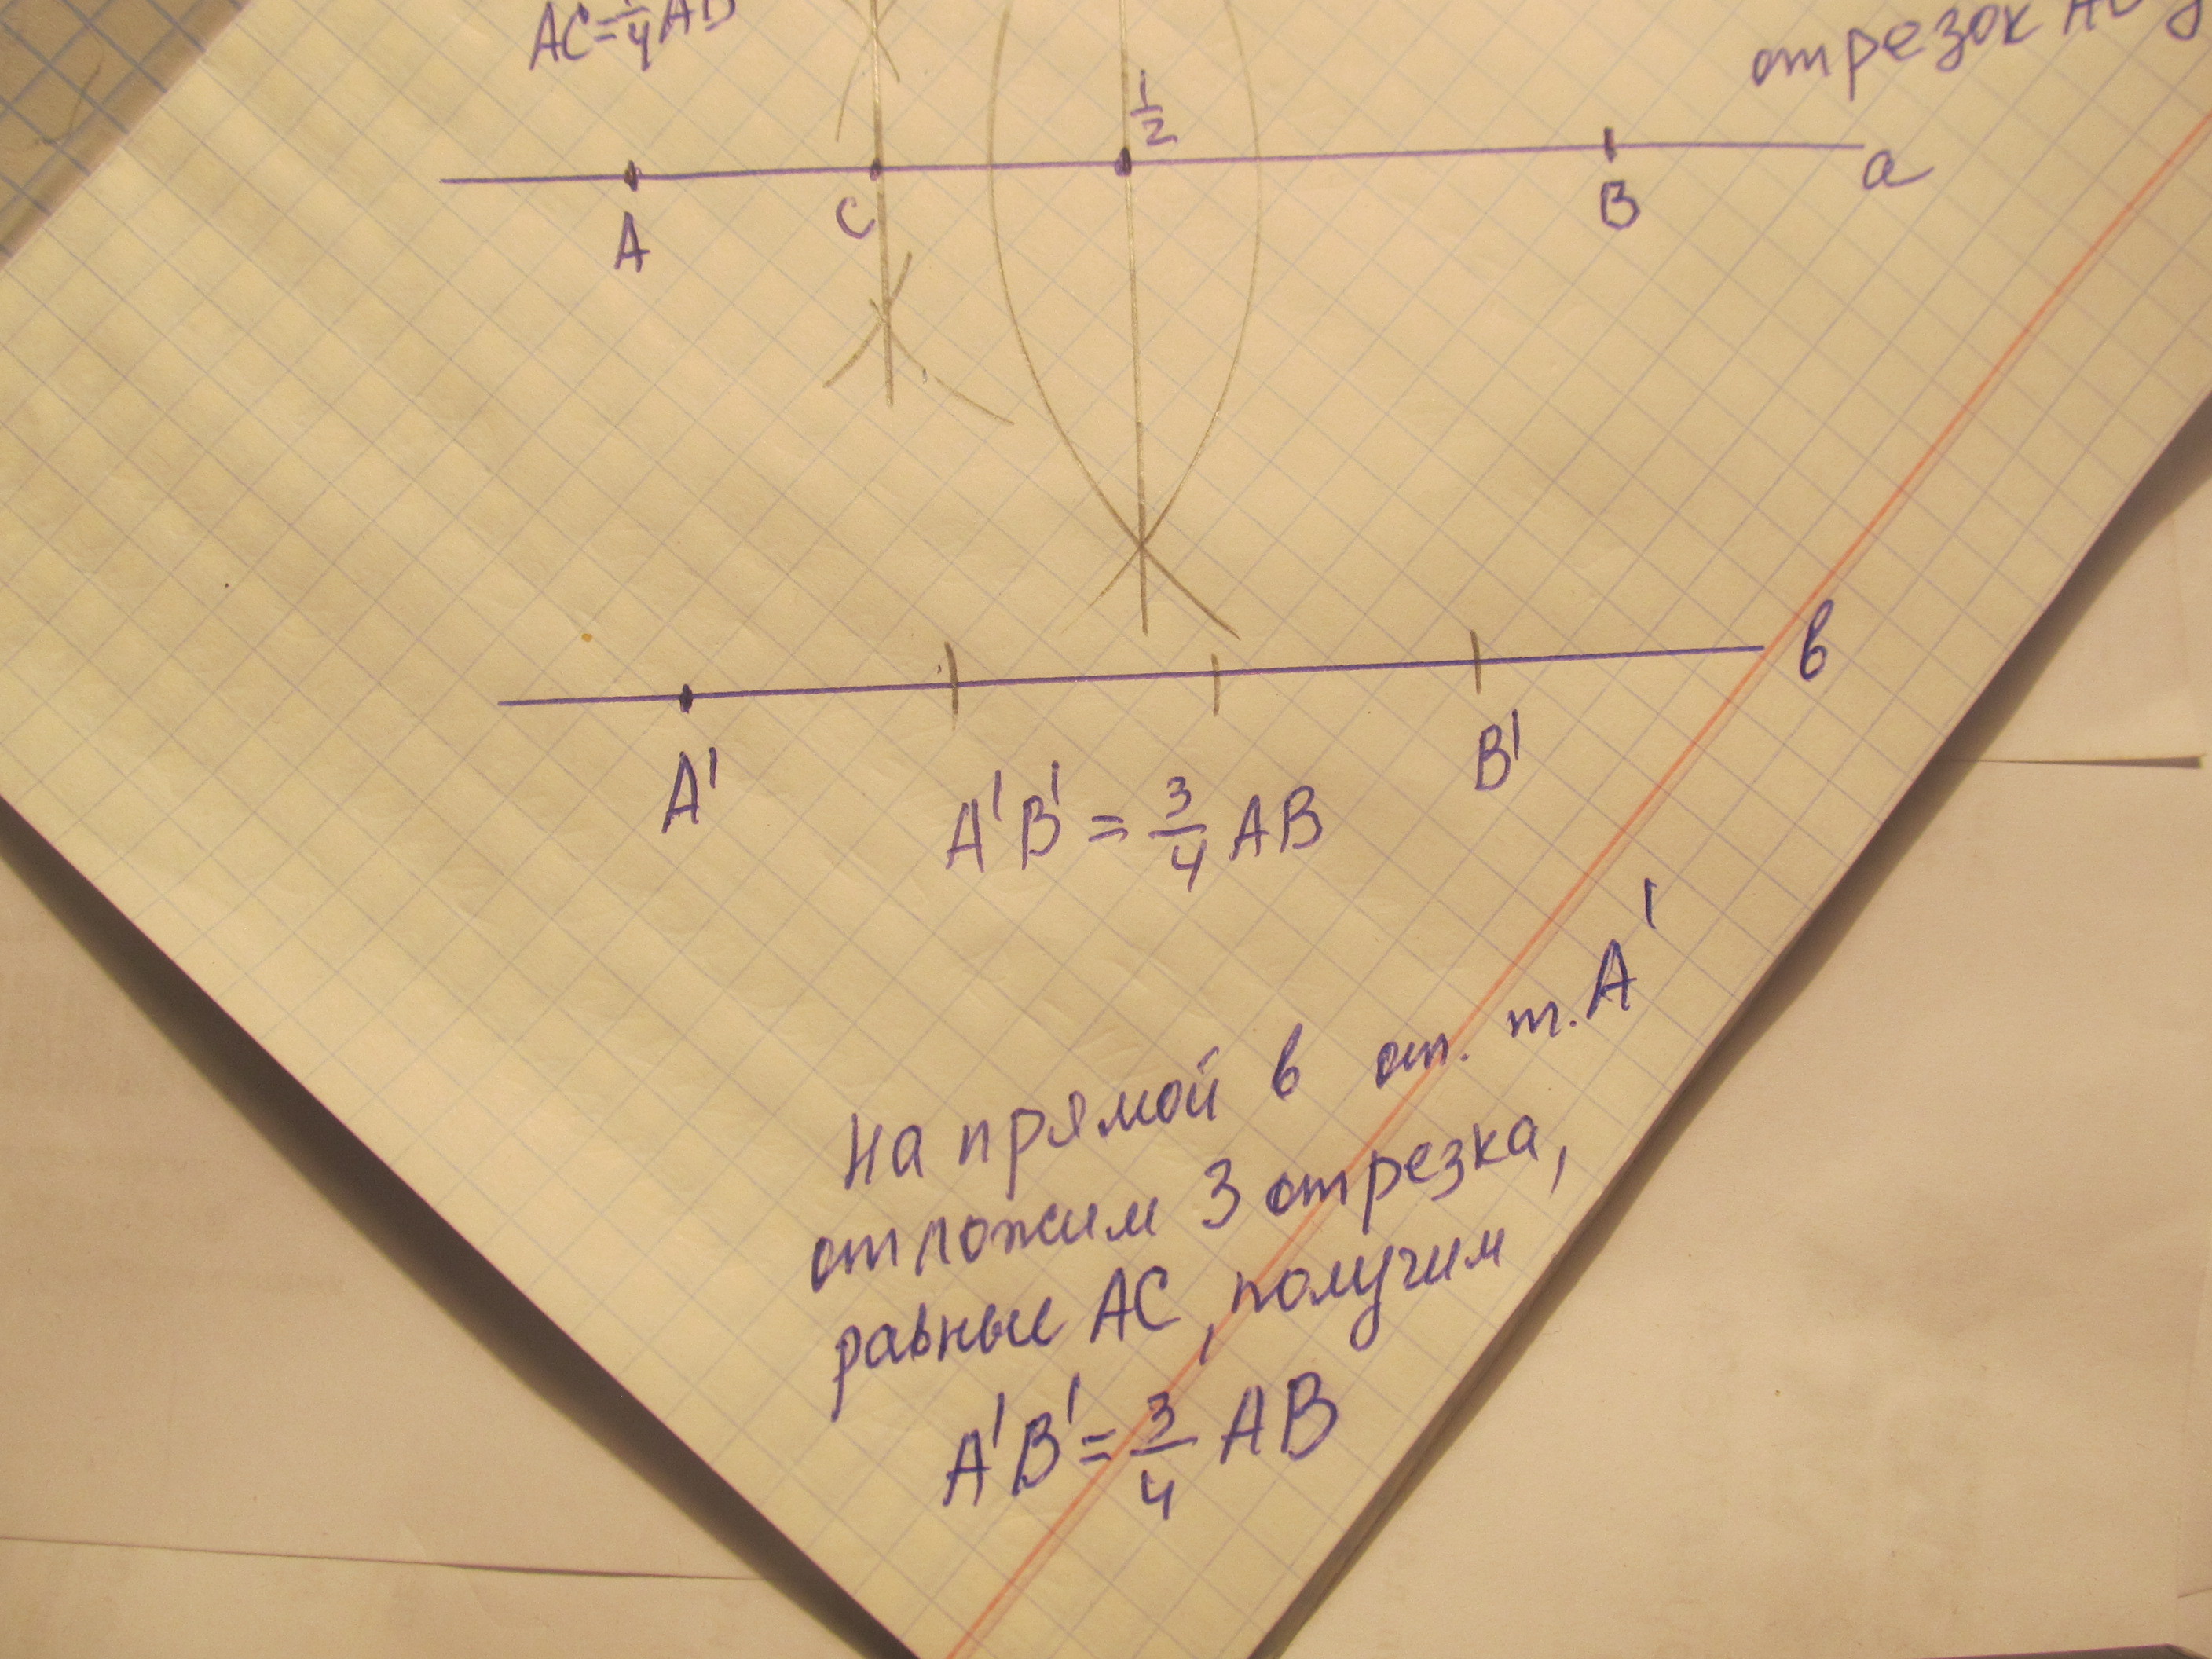 AC=1/4 AB
отрезок
1/2
A
C
B
a
в
A'
B'
A'B' = 3/4 AB
На прямой в от. т. A'
отложим 3 отрезка,
равные AC, получим
A'B' = 3/4 AB